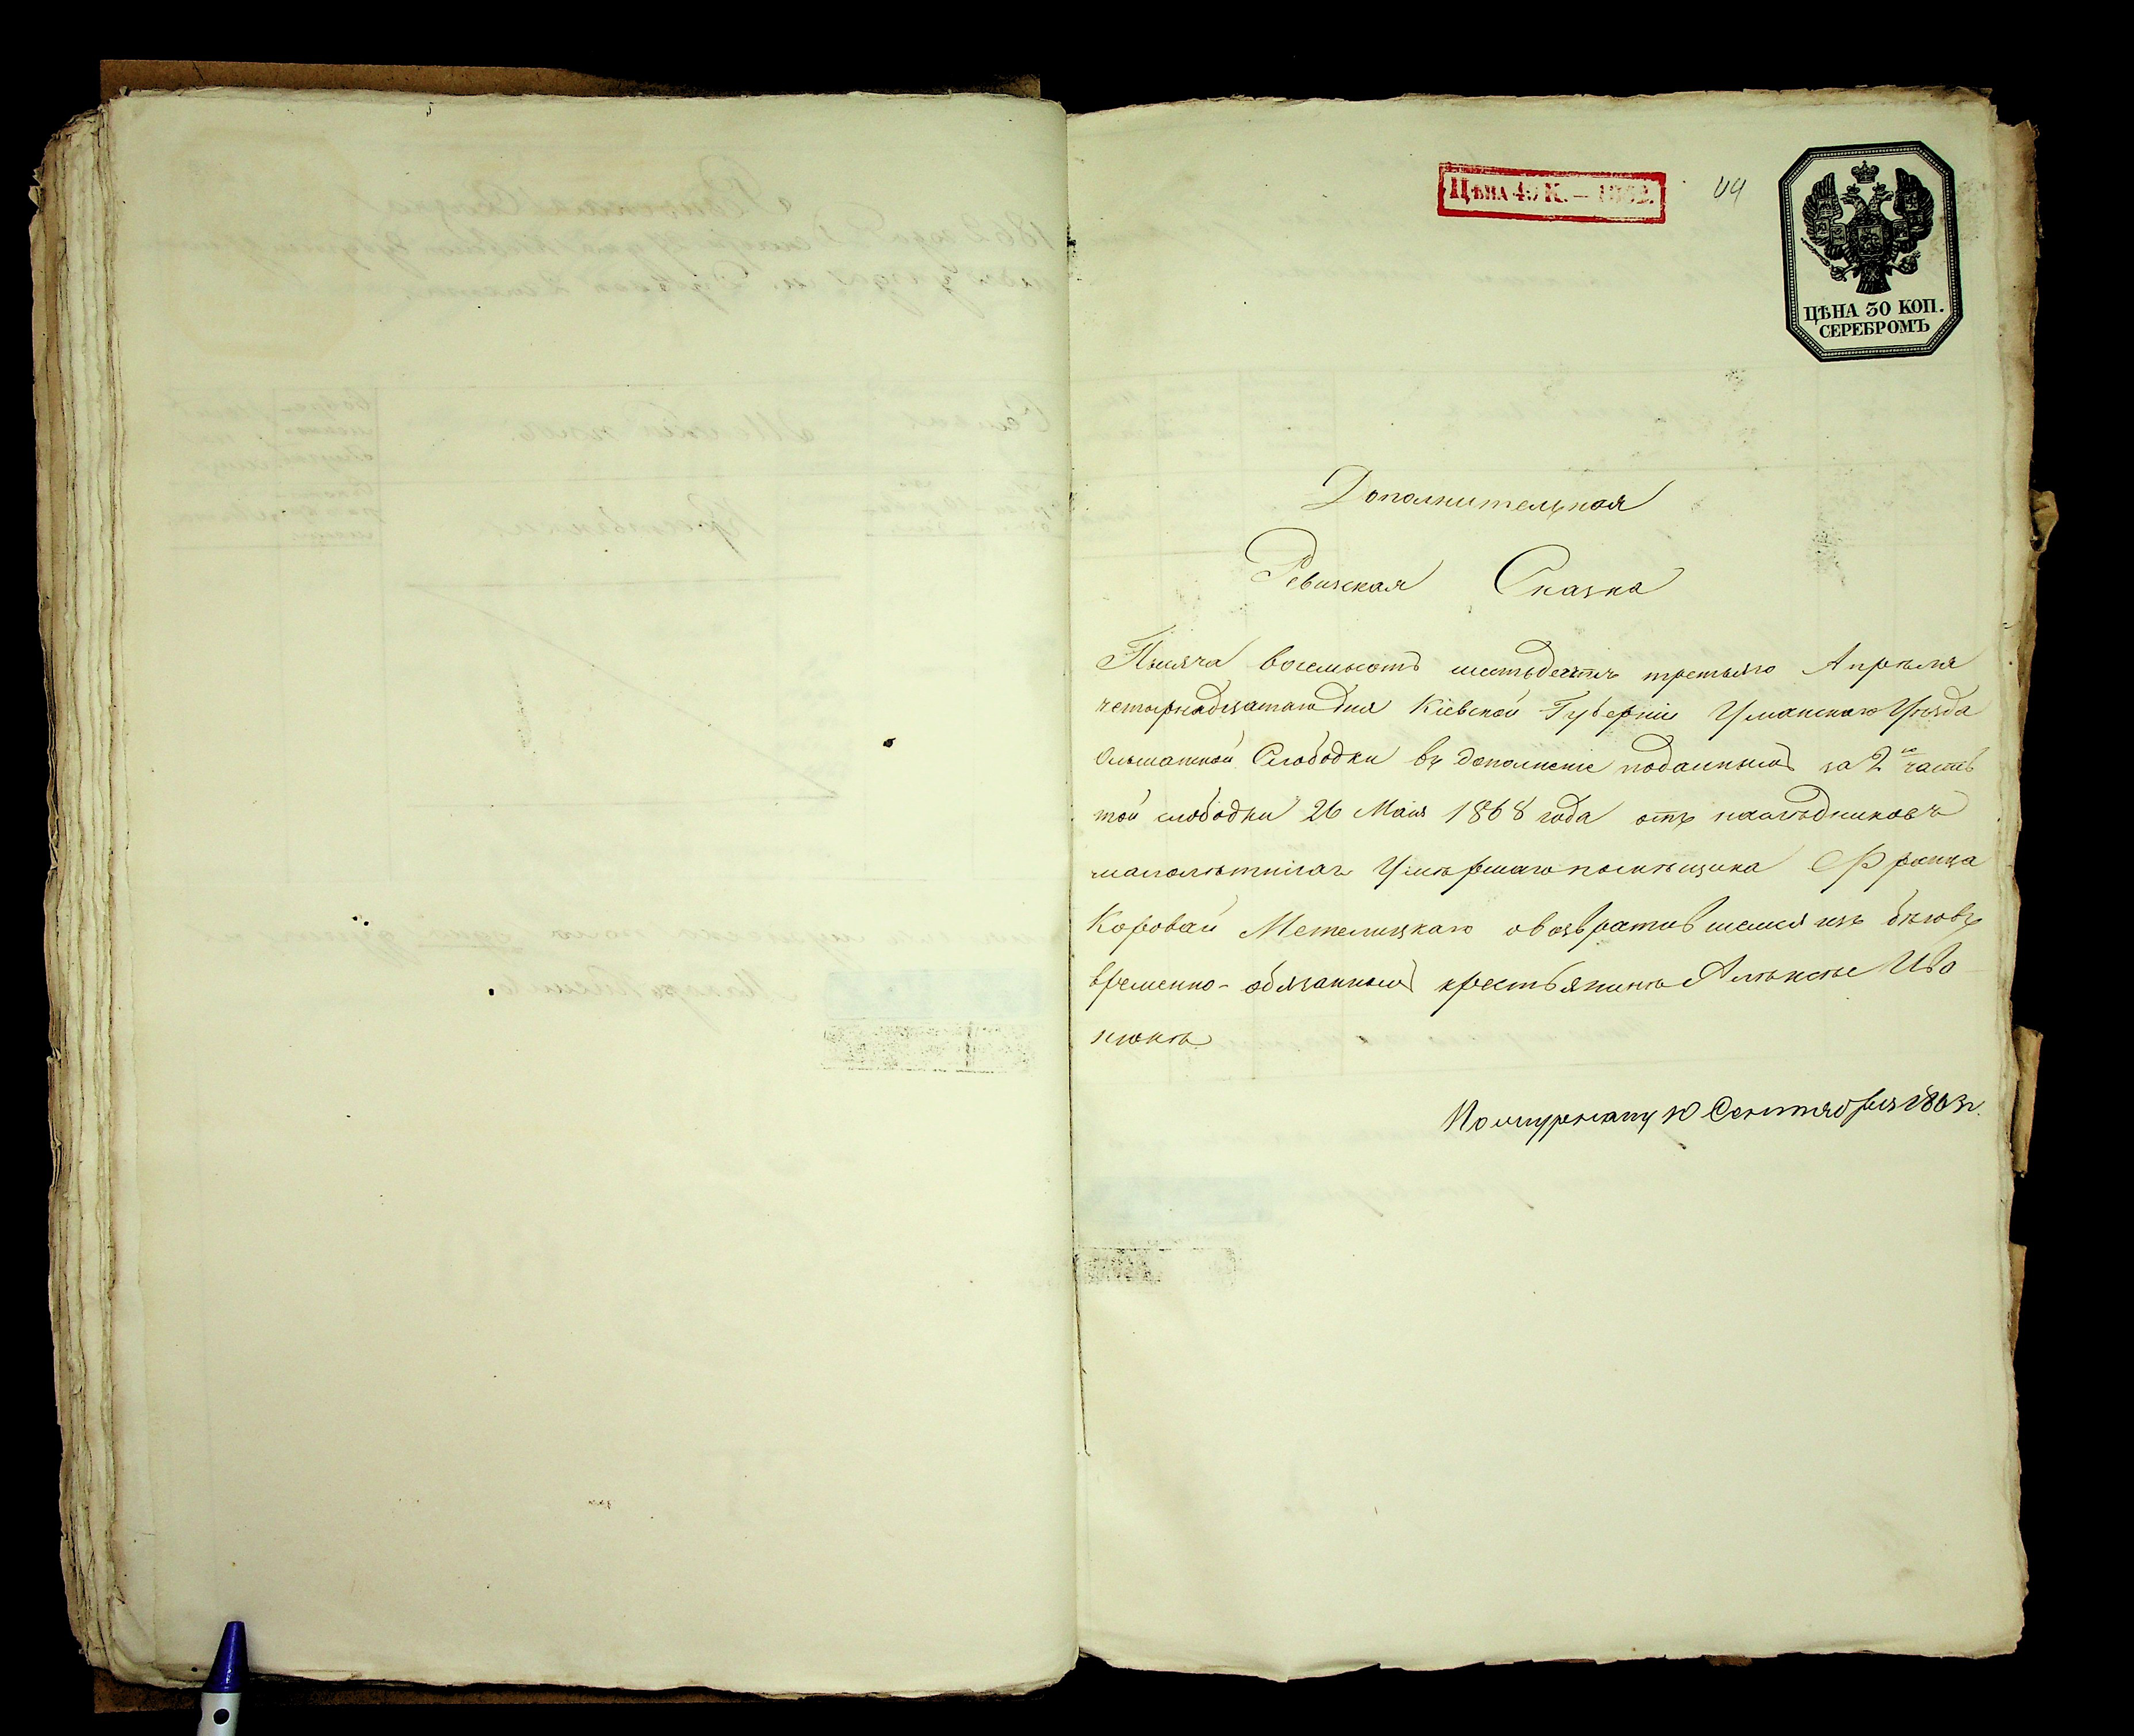 Цѣна 40 К. — 1862.
44
ЦѢНА 30 КОП.
СЕРЕБРОМЪ
Дополнительная
Ревизская Сказка
Тысяча восемьсотъ шестьдесятъ третьяго Апрѣля
четырнадцатаго дня Кіевской Губерніи Уманскаго Уѣзда
Ольшаной Слободки въ дополненіе поданнымъ за 2ю часть
той слободки 26 Маія 1868 года отъ наслѣдниковъ
малолѣтнихъ Умѣршаго помѣщика Франца
Коровай Метелицкаго о возвратившемся изъ бѣговъ
временно-обязанномъ крестьянинѣ Алѣксѣе Иво
нюкѣ
По журналу 10 Сентября 1863 г.